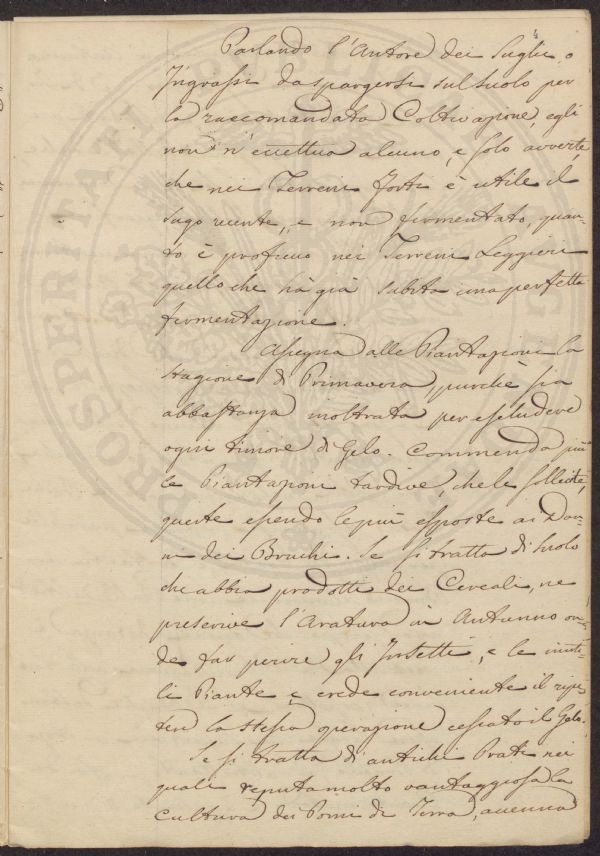 4
Parlando l'Autore dei Sughi, o
Ingrassi da spargersi sul suolo per
la raccomandata Coltivazione, egli
non n'eccettua alcuno, e solo avverte,
che nei Terreni forti è utile il
sugo recente, e non fermentato, quan-
to è proficuo nei Terreni Leggieri
quello che hà già subita una perfetta
fermentazione.
Assegna alle Piantazioni la
Stagione di Primavera, purchè sia
abbastanza inoltrata per escludere
ogni timore di Gelo. Commenda più
le Piantazioni tardive, che le sollecite,
queste essendo le più esposte ai Dan-
ni dei Bruchi. Se si tratta di suolo
che abbia prodotti dei Cereali, ne
prescrive l'Aratura in Autunno on-
de far perire gli Insetti, e le inuti-
li Piante e crede conveniente il ripe-
ter la stessa operazione cessato il Gelo.
Se si tratta di antichi Prati nei
quali reputa molto vantaggiosa la
Cultura dei Pomi di Terra, accenna
PROSPERITATI PUBLICAE